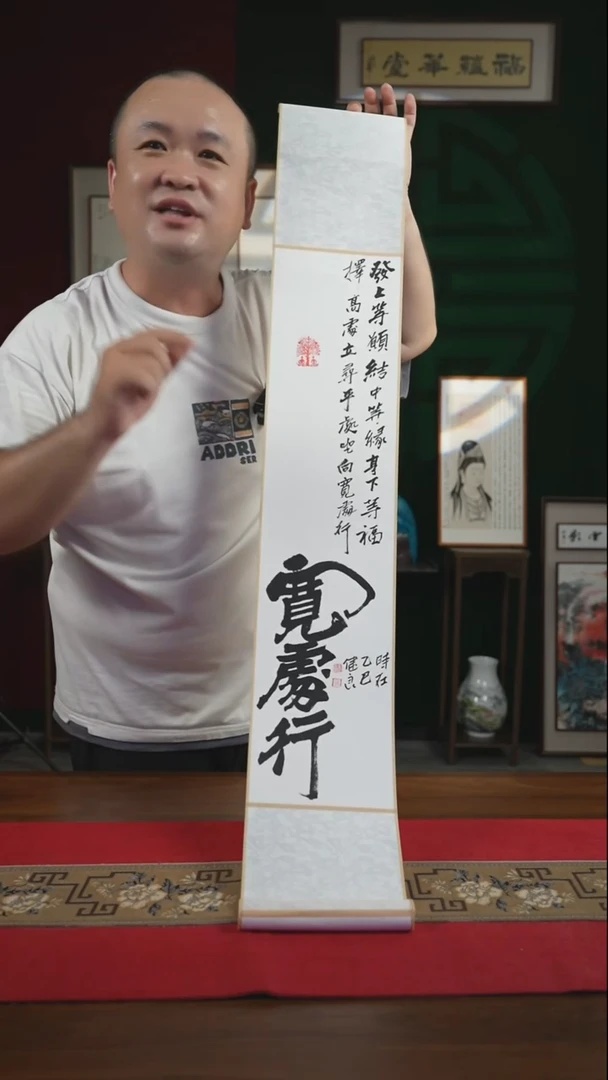 福蘊華堂
發上等願結中等緣享下等福
擇高處立尋平處坐向寬處行
寬處行
時在
乙巳
ADDRI
SER